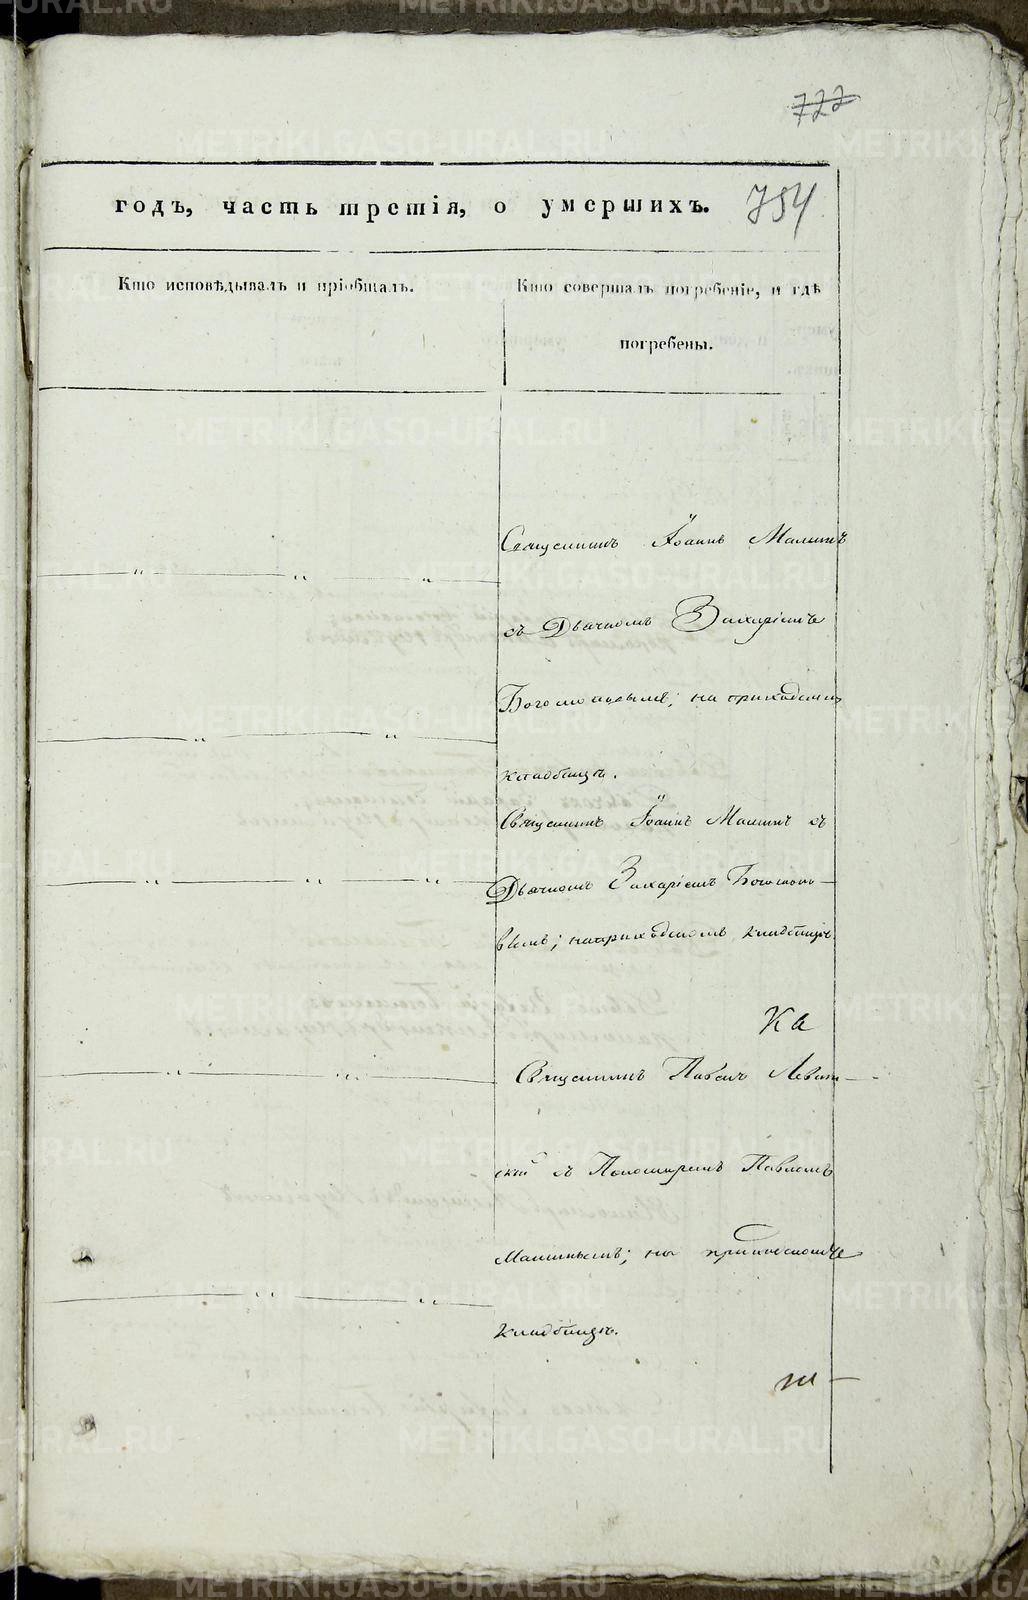 722
годъ, часть третія, о умершихъ. 754
Кто исповѣдывалъ и пріобщалъ.
Кто совершалъ погребеніе, и гдѣ
погребены.
Священникъ Іоаннъ
съ Дьячкомъ Захаріемъ
на приходскомъ
кладбищѣ.
Священникъ Іоаннъ съ
Дьячкомъ Захаріемъ
на приходскомъ кладбищѣ.
Ка
Священникъ Павелъ Левит
скій съ Пономаремъ Павломъ
на приходскомъ
Кладбищѣ.
METRIKI.GASO-URAL.RU